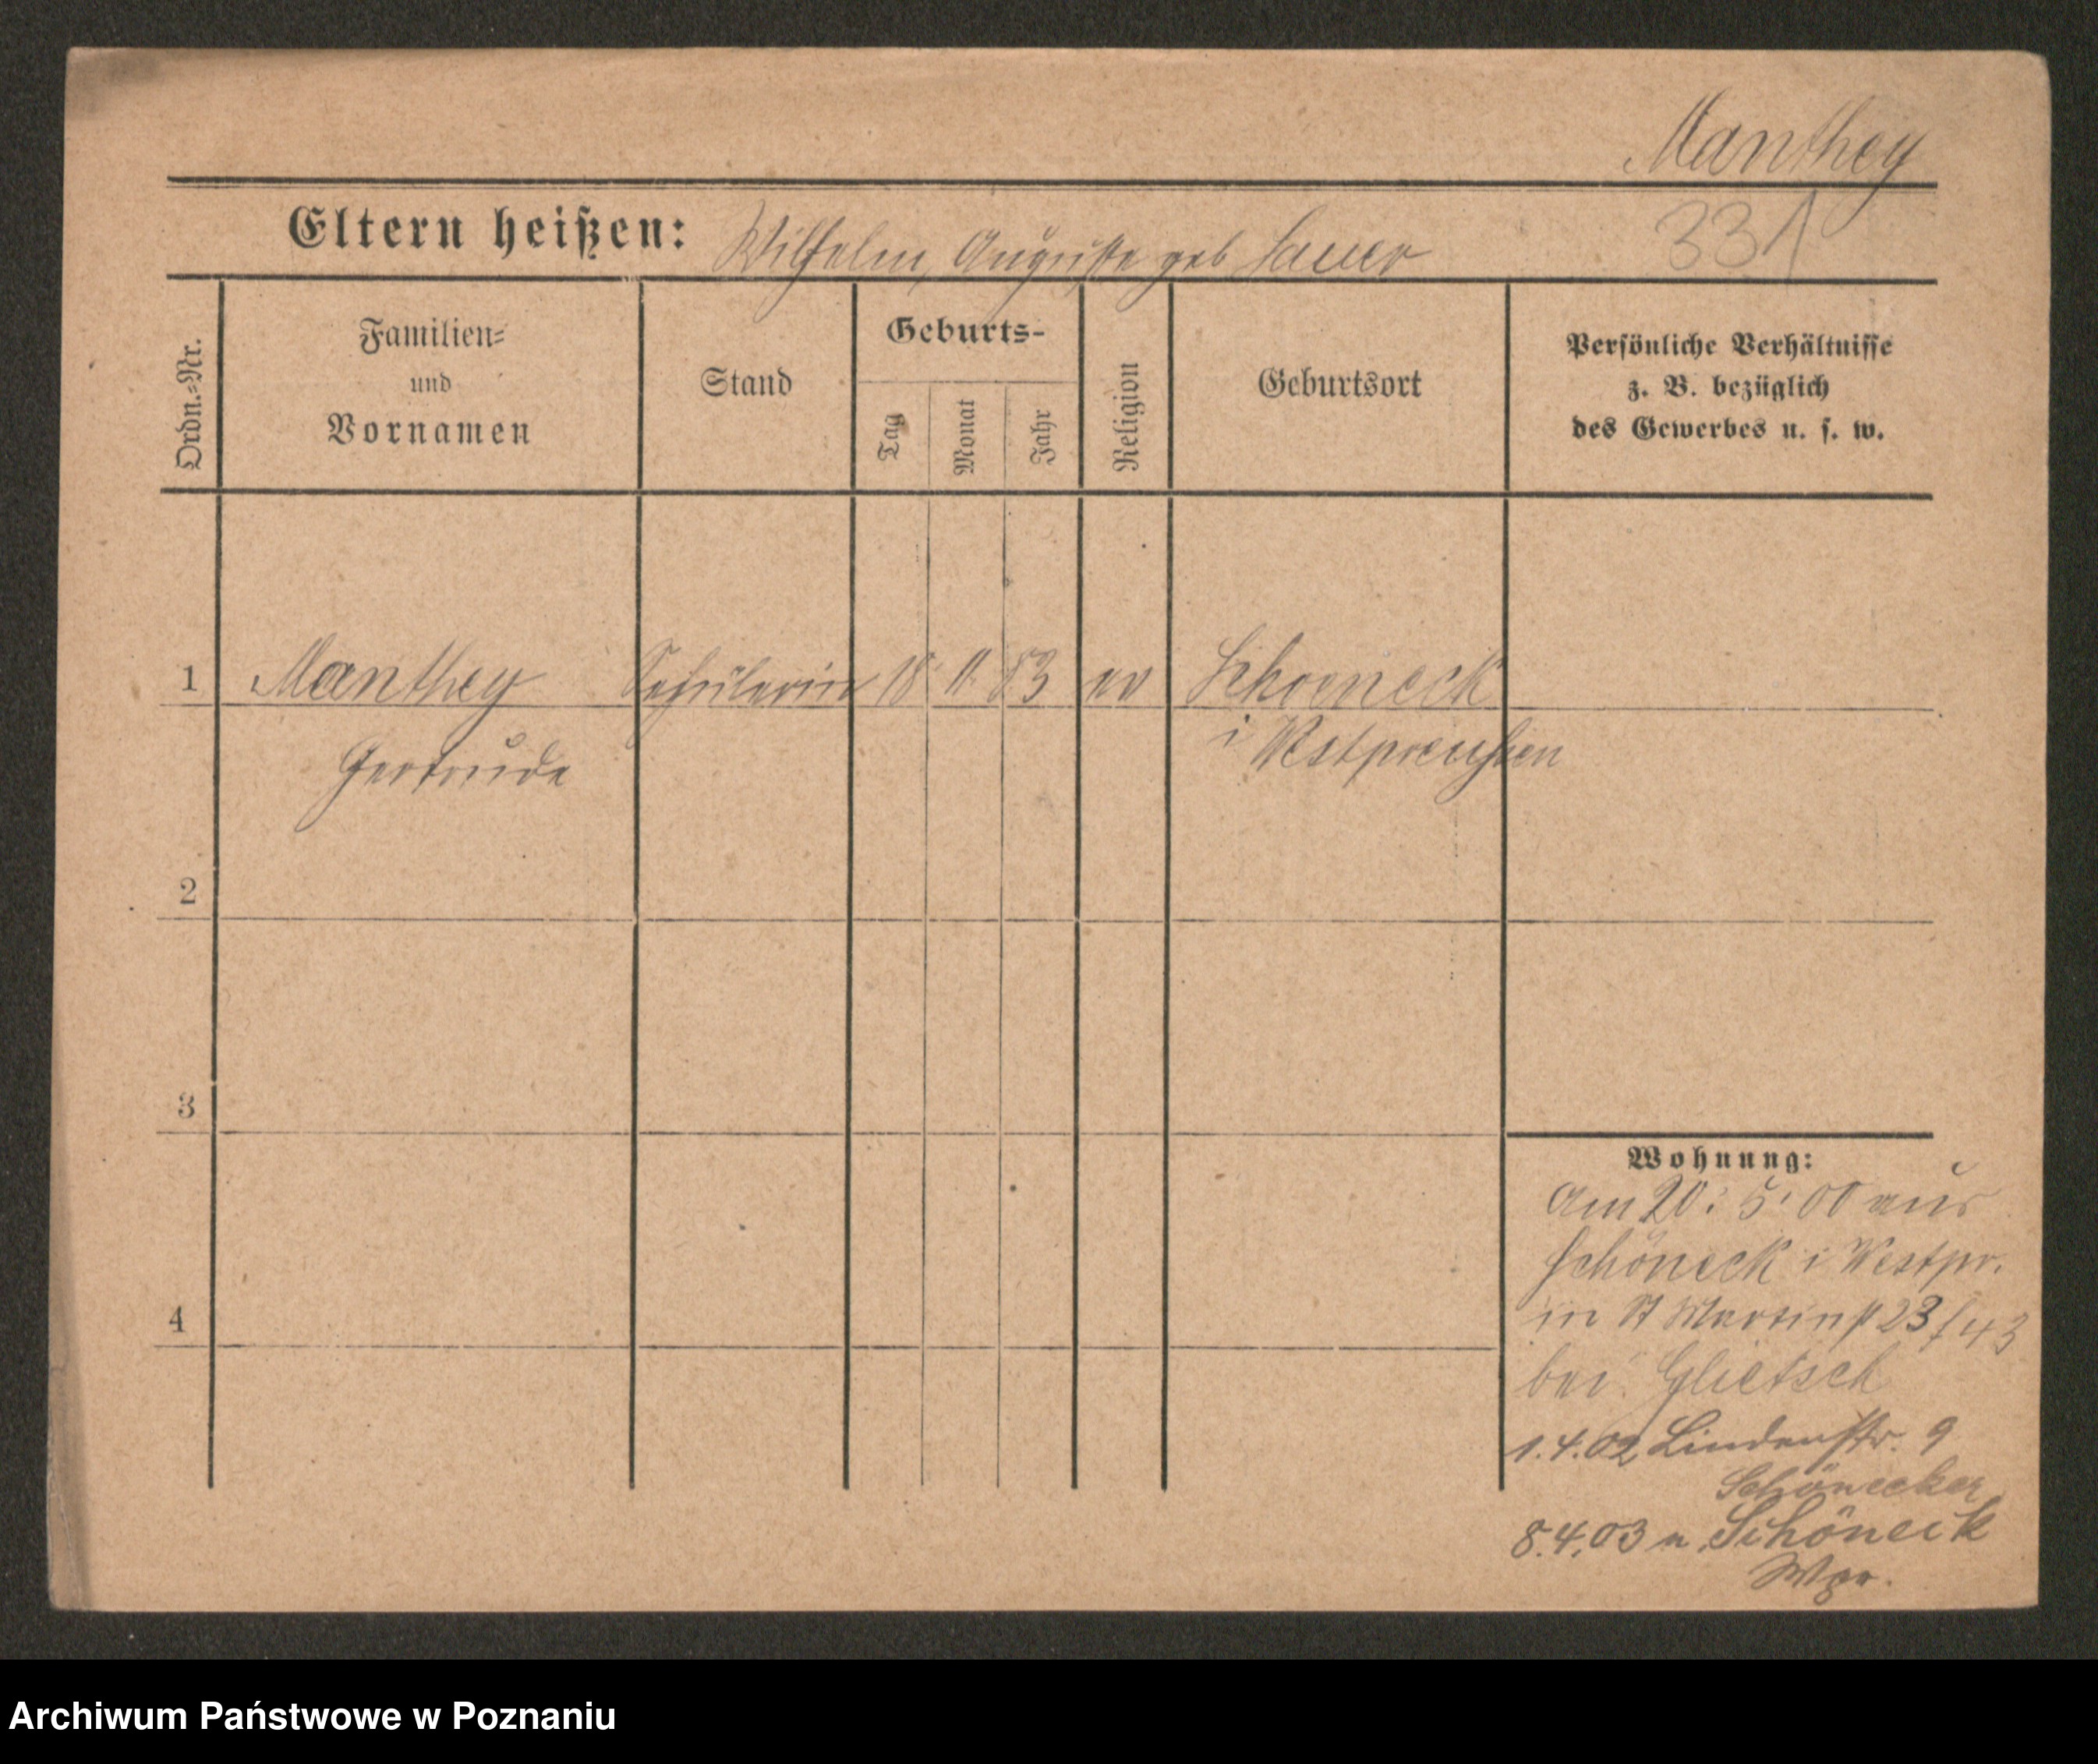 Manthey
331
Eltern heißen: Wilhelm, Auguste geb Sauer
Ordn.-Nr.
Familien-
und
Vornamen
Stand
Geburts-
Tag
Monat
Jahr
Religion
Geburtsort
Persönliche Verhältnisse
z. B. bezüglich
des Gewerbes u. s. w.
1 Manthey Schülerin 18 11 83 ev Schoeneck
Gertrude i Westpreußen
2
3
4
Wohnung:
Am 20. 5. 00 aus
Schöneck i Westpr.
in St Martinst 23/43
bei Glietsch
1.4.02 Lindenstr. 9
Schönecker
8.4.03 n Schöneck
Wpr.
Archiwum Państwowe w Poznaniu